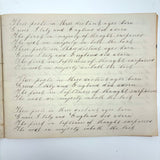 Three poets in three distant ages born
Greece Italy and England did adorn
The first in majesty of thought surpassed
The next in majesty in both the last
Three poets in three distant ages born
Greece Italy and England did adorn
The first in majesty of thought surpassed
The next in majesty in both the last
Three poets in three distant ages born
Greece Italy and England did adorn
The first in majesty of thought surpassed
The next in majesty in both the last
Three poets in three distant ages born
Greece Italy and England did adorn
The first in loftiness of thought surpassed
The next in majesty in both the last